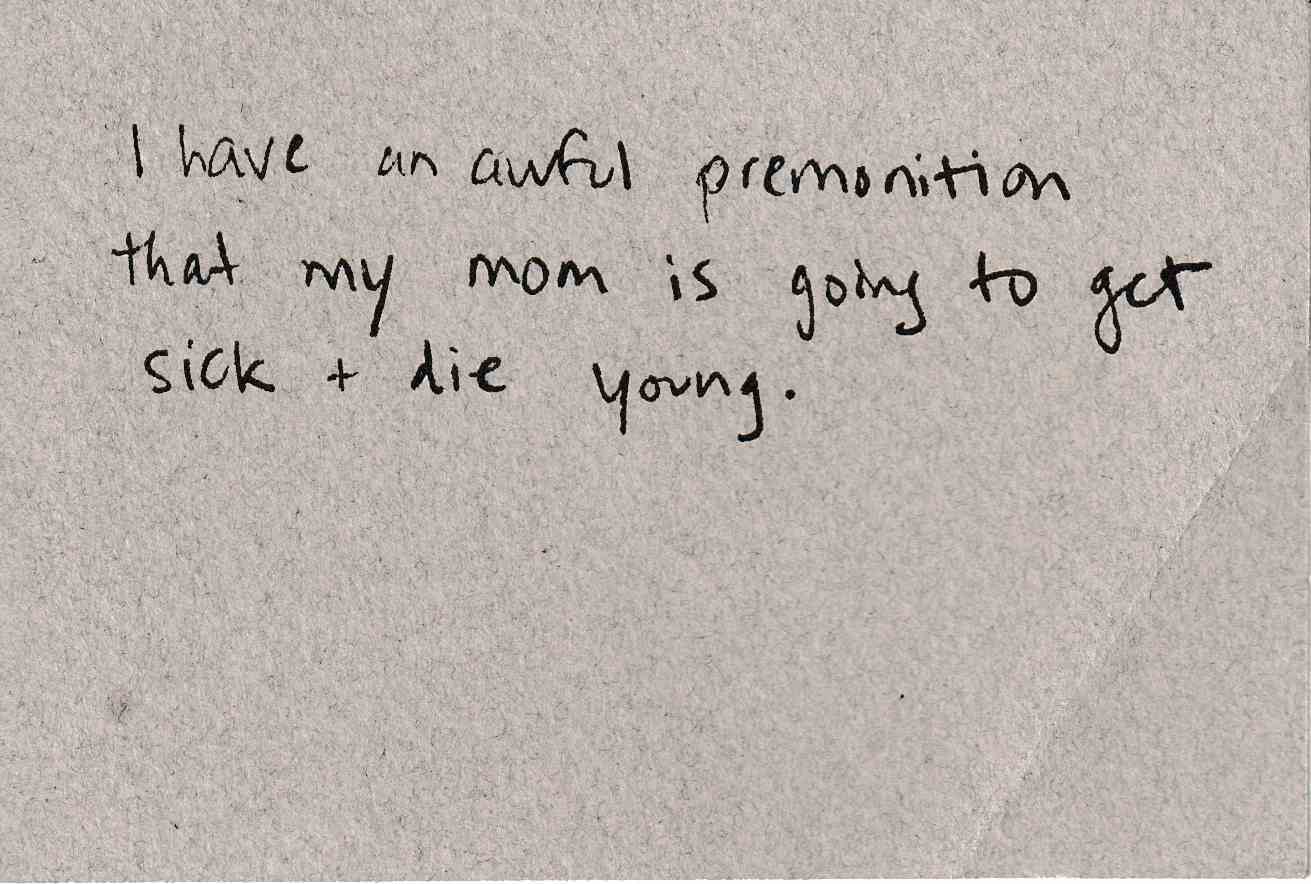 I have an awful premonition
that my mom is going to get
sick + die young.